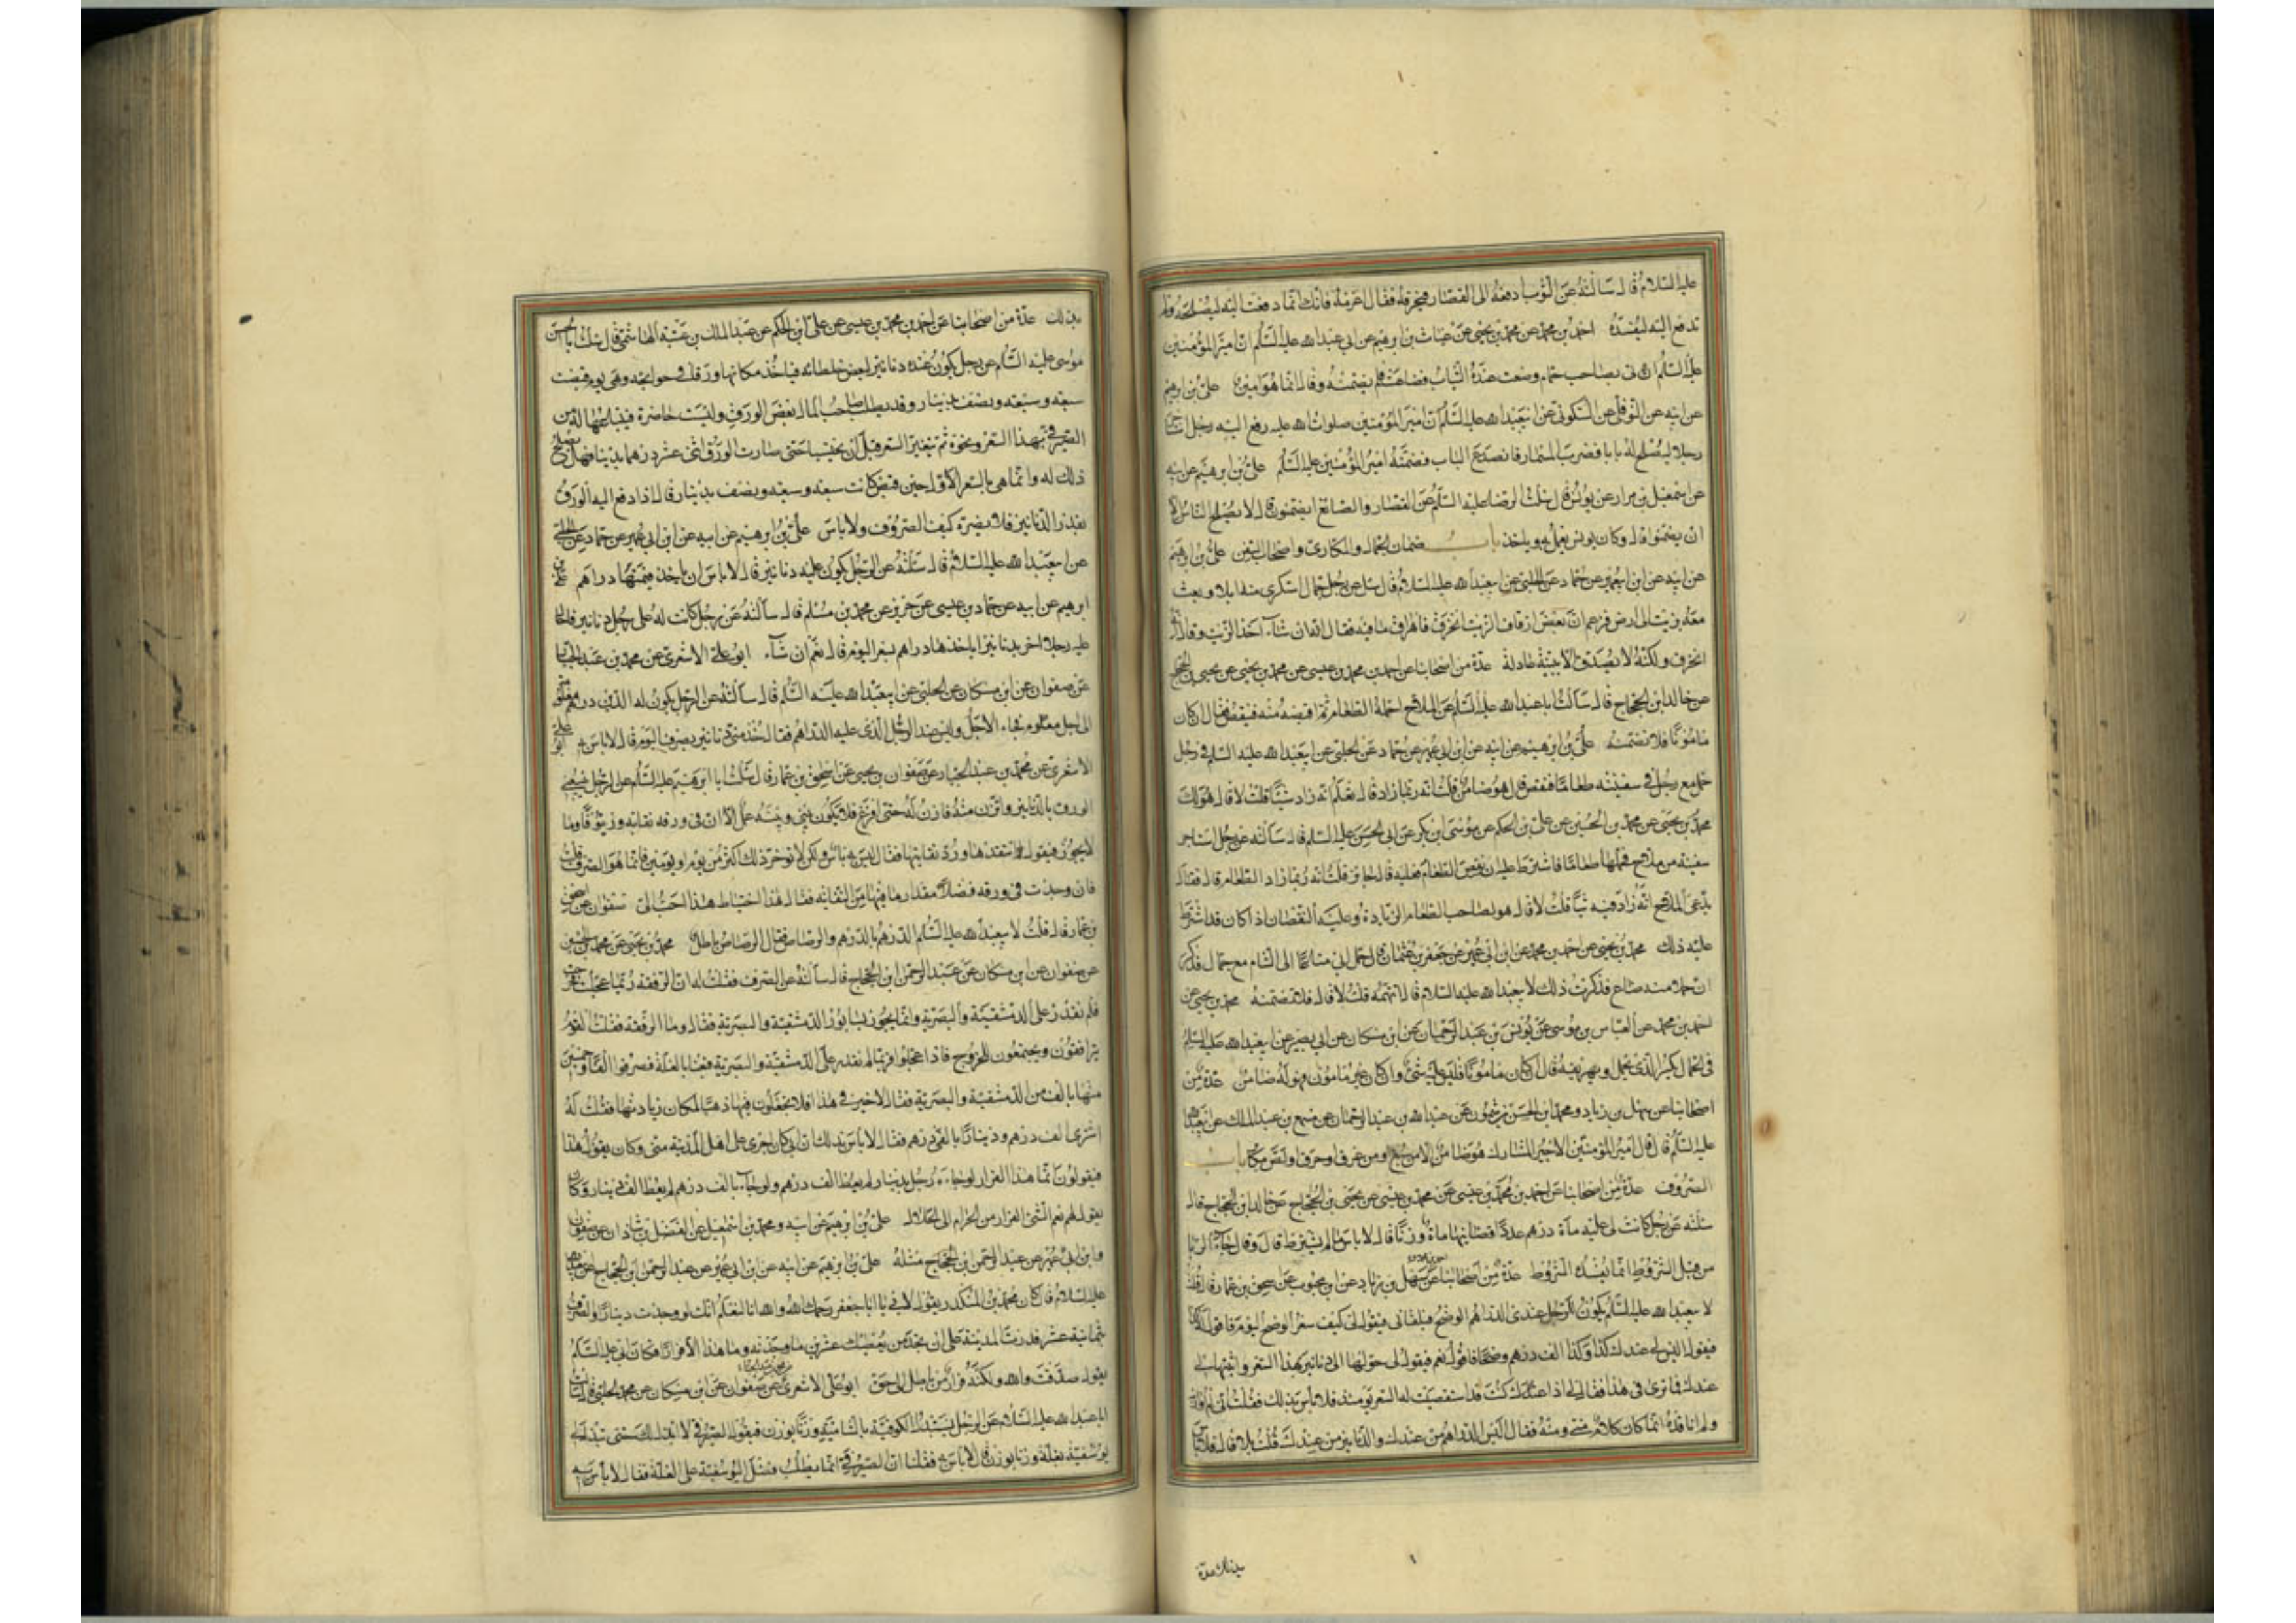 عليه السلام قال سألته عن الثوب ادفعه الى القصار فيخرقه فقال اغرمه فانك انما دفعت اليه ليصلحه ولم
تدفع اليه ليفسده احمد بن محمد عن محمد بن يحيى عن غياث بن ابرهيم عن ابي عبد الله عليه السلم ان امير المؤمنين
عليه السلم اتى بصاحب حمام وضعت عنده الثياب فضاعت فلم يضمنه وقال انما هو امين علي بن ابرهيم
عن ابيه عن النوفلي عن السكوني عن ابيعبد الله عليه السلم ان امير المؤمنين صلوات الله عليه رفع اليه رجل استاجر
رجلا ليصلح له بابا فضرب المسمار فانصدع الباب فضمنه امير المؤمنين عليه السلم علي بن ابرهيم عن ابيه
عن اسمعيل بن مرار عن يونس قال سئلت الرضا عليه السلم عن القصار والصائغ ايضمنون قال لا يصلح الناس الا
ان يضمنوا قال وكان يونس يعمل به وياخذ باب ضمان الجمال والمكاري واصحاب السفن علي بن ابرهيم
عن ابيه عن ابن ابيعمير عن حماد عن الحلبي عن ابيعبد الله عليه السلام قال سئل عن رجل جمال استكرى منه ابلا وبعث
معه بزيت الى ارض فزعم ان بعض ازقاق الزيت انخرق فاهراق ما فيه فقال انه ان شاء اخذ الزيت وقال انه
انخرق ولكنه لا يصدق الا ببينة عادلة عدة من اصحابنا عن احمد بن محمد بن عيسى عن محمد بن يحيى عن يحيى بن الحجاج
عن خالد ابن الحجاج قال سألت ابا عبد الله عليه السلم عن الملاح احمله الطعام ثم اقبضه منه فينقص فقال ان كان
مامونا فلا تضمنه علي بن ابرهيم عن ابيه عن ابن ابي عمير عن حماد عن الحلبي عن ابيعبد الله عليه السلم في رجل
حمل مع رجل في سفينته طعاما فنقص قال هو ضامن قلت انه ربما زاد قال تعلم انه زاد شيئا قلت لا قال هو لك
محمد بن يحيى عن محمد بن الحسين عن علي بن الحكم عن موسى ابن بكر عن ابي الحسن عليه السلم قال سألته عن رجل استاجر
سفينة من ملاح فحملها طعاما فاشترط عليه ان نقص الطعام فعليه قال جائز قلت انه ربما زاد الطعام قال فقال
يدعي الملاح انه زاد فيه شيئا قلت لا قال هو لصاحب الطعام الزيادة وعليه النقصان اذا كان قد اشترط
عليه ذلك محمد بن يحيى عن احمد بن محمد عن ابن ابي عمير عن جعفر بن عثمان قال حمل ابي متاعا الى الشام مع جمال فذكر
ان حملا منه ضاع فذكرت ذلك لابيعبد الله عليه السلام قال اتتهمه قلت لا قال فلا تضمنه محمد بن يحيى عن
احمد بن محمد عن العباس بن موسى عن يونس بن عبد الرحمان عن ابن مسكان عن ابي بصير عن ابيعبد الله عليه السلم
في الجمال يكسر الذي يحمل او يهريقه قال ان كان مامونا فليس عليه شيء وان كان غير مامون فهو له ضامن عدة من
اصحابنا عن سهل بن زياد ومحمد ابن الحسن بن شمون عن عبد الله بن عبد الرحمان عن مسمع بن عبد الملك عن ابيعبد الله
عليه السلم قال قال امير المؤمنين الاجير المشارك هو ضامن الا من سبع او من غرق او حرق او لص مكابر باب
الصروف عدة من اصحابنا عن احمد بن محمد بن عيسى عن محمد بن عيسى عن يحيى بن الحجاج عن خالد ابن الحجاج قال
سئلته عن رجل كانت لي عليه مأة درهم عددا قضانيها ماة وزنا قال لا باس ما لم يشترط قال وقال جاء الربا
من قبل الشروط انما تفسده الشروط عدة من اصحابنا عن سهل بن زياد عن ابن محبوب عن اسحق بن عمار قال قلت
لابيعبد الله عليه السلم يكون للرجل عندي الدراهم الوضح فيلقاني فيقول لي كيف سعر الوضح اليوم فاقول له كذا
فيقول اليس لي عندك كذا وكذا الف درهم وضحا فاقول نعم فيقول لي حولها الى دنانير بهذا السعر واثبتها لي
عندك فما ترى في هذا فقال لي اذا كنت قد استقصيت له السعر يومئذ فلا بأس بذلك فقلت اني لم اوازنه
ولم اناقده انما كان كلام مني ومنه فقال اليس الدراهم من عندك والدنانير من عندك قلت بلى قال فلا باس
بذلك عدة
بذلك عدة من اصحابنا عن احمد بن محمد بن عيسى عن علي ابن الحكم عن عبد الملك بن عتبة الهاشمي قال سئلت ابا الحسن
موسى عليه السلم عن رجل يكون عنده دنانير لبعض خلطائه فياخذ مكانها ورقا في حوائجه وهي يوم قبضت
سبعة وسبعة ونصف بدينار وقد يطلب صاحب المال بعض الورق وليست حاضرة فيبتاعها له من
الصيرفي بهذا السعر ونحوه ثم يتغير السعر قبل ان يحتسبا حتى صارت الورق اثنى عشر درهما بدينار فهل يصلح
ذلك له وانما هي بالسعر الاول حين قبض كانت سبعة وسبعة ونصف بدينار قال اذا دفع اليه الورق
بقدر الدنانير فلا يضره كيف الصروف ولا باس علي بن ابرهيم عن ابيه عن ابن ابي عمير عن حماد عن الحلبي
عن ابيعبد الله عليه السلام قال سئلته عن الرجل يكون عليه دنانير قال لا باس ان ياخذ بثمنها دراهم علي بن
ابرهيم عن ابيه عن حماد بن عيسى عن حريز عن محمد بن مسلم قال سألته عن رجل كانت له على رجل دنانير فاحال
عليه رجلا اخر بدنانير اياخذها دراهم بسعر اليوم قال نعم ان شاء ابو علي الاشعري عن محمد بن عبد الجبار
عن صفوان عن ابن مسكان عن الحلبي عن ابيعبد الله عليه السلم قال سألته عن الرجل يكون له الدين دراهم معلومة
الى اجل معلوم فجاء الاجل وليس عند الرجل الذي عليه الدراهم فقال خذ مني دنانير بصرف اليوم قال لا باس به ابو علي
الاشعري عن محمد بن عبد الجبار عن صفوان بن يحيى عن اسحق بن عمار قال سئلت ابا ابرهيم عليه السلم عن الرجل يبيعني
الورق بالدنانير واتزن منه فازن له حتى افرغ فلا يكون بيني وبينه عمل الا ان في ورقه نفاية وزيوفا وما
لا يجوز فيقول انتقدها ورد نفايتها فقال ليس به باس ولكن لا تؤخر ذلك اكثر من يوم او يومين فانما هو الصرف قلت
فان وجدت في ورقه فضلا مقدار ما فيها من النفاية فقال هذا احتياط هذا احب الي صفوان عن اسحق
بن عمار قال قلت لابيعبد الله عليه السلم الدرهم بالدرهم والرصاص فقال الرصاص باطل محمد بن يحيى عن محمد بن الحسين
عن صفوان عن ابن مسكان عن عبد الرحمن ابن الحجاج قال سألته عن الصرف فقلت له ان الرفقة ربما عجلت فخرجت
فلم نقدر على الدمشقية والبصرية وانما يجوز بسابور الدمشقية والبصرية فقال وما الرفقة فقلت القوم
يترافقون ويجتمعون للخروج فاذا عجلوا فربما لم نقدر على الدمشقية والبصرية فبعثنا بالغلة فصرفوا الفا وخمسين
منها بالف من الدمشقية والبصرية فقال لا خير في هذا افلا تجعلون فيها ذهبا لمكان زيادتها فقلت له
اشتري الف درهم ودينارا بالفي درهم فقال لا باس بذلك ان ابي كان اجرى على اهل المدينة مني وكان يقول هذا
فيقولون انما هذا الفرار لو جاء رجل بدينار لم يعط الف درهم ولو جاء بالف درهم لم يعط الف دينار وكان
يقول لهم نعم الشئ الفرار من الحرام الى الحلال علي بن ابرهيم عن ابيه ومحمد بن اسمعيل عن الفضل بن شاذان عن صفوان
وابن ابي عمير عن عبد الرحمن ابن الحجاج مثله علي بن ابرهيم عن ابيه عن ابن ابي عمير عن عبد الرحمن ابن الحجاج عن ابيعبد الله
عليه السلام قال كان محمد بن المنكدر يقول لابي يا ابا جعفر رحمك الله والله انا لنعلم انك لو وجدت دينارا والصرف
بثمانية عشر فدرت المدينة على ان تجد من يعطيك عشرين ما وجدته وما هذا الا فرار وكان ابي عليه السلم
يقول صدقت والله ولكنه فرار من باطل الى حق ابو علي الاشعري عن صفوان عن ابن مسكان عن محمد الحلبي قال سألت
ابا عبد الله عليه السلام عن الرجل يستبدل الكوفية بالشامية وزنا بوزن فيقول الصيرفي لا ابدلك حتى تبدلني
يوسفية بغلة وزنا بوزن قال لا باس به فقلنا ان الصيرفي انما يطلب فضل اليوسفية على الغلة فقال لا باس به